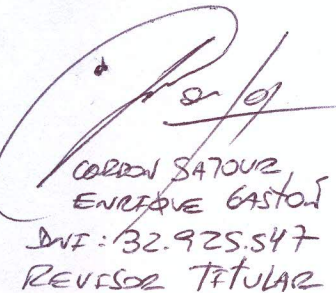 CORDON SATOUR,
ENRIQUE GASTON
DNI: 32.925.547
REVISOR TITULAR